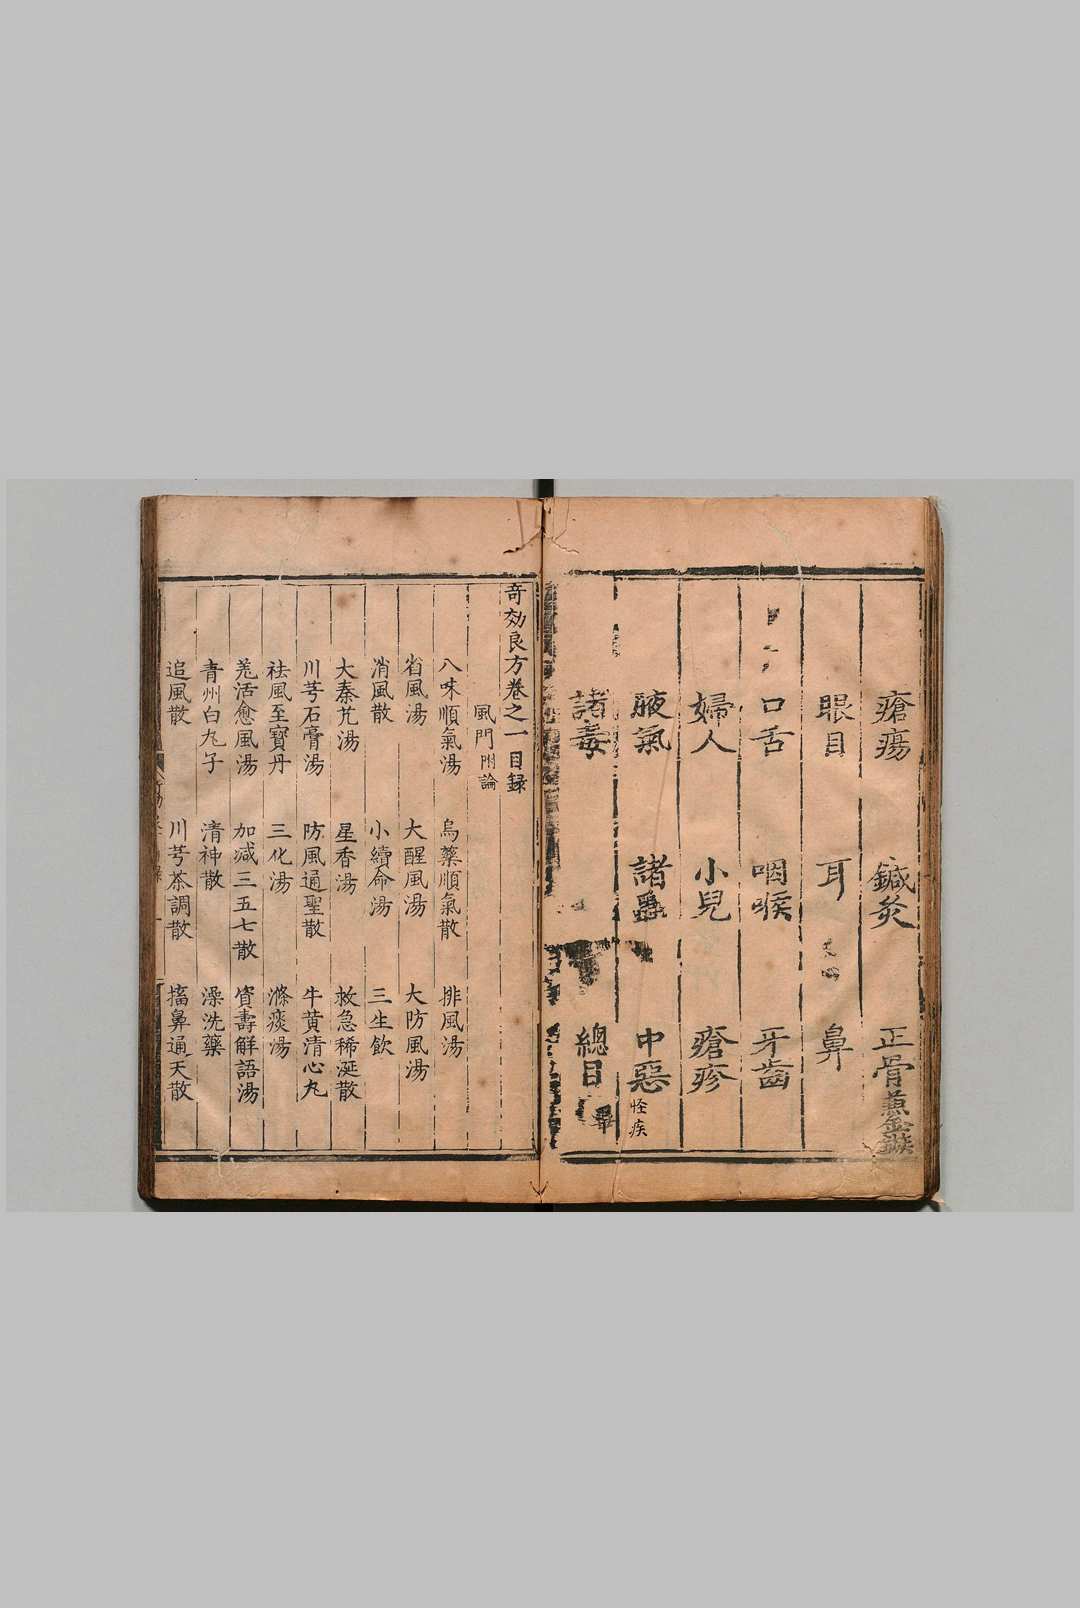 瘡瘍 鍼灸 正骨兼金鏃
眼目 耳 鼻
口舌 咽喉 牙齒
婦人 小兒 瘡疹
腋氣 諸蟲 中惡怪疾
諸毒 總目畢
奇効良方卷之一目録
風門附論
八味順氣湯 烏藥順氣散 排風湯
省風湯 大醒風湯 大防風湯
消風散 小續命湯 三生飲
大秦艽湯 星香湯 救急稀涎散
川芎石膏湯 防風通聖散 牛黄清心丸
祛風至寶丹 三化湯 滌痰湯
羌活愈風湯 加減三五七散 資壽解語湯
青州白丸子 清神散 澡洗藥
追風散 川芎茶調散 搐鼻通天散